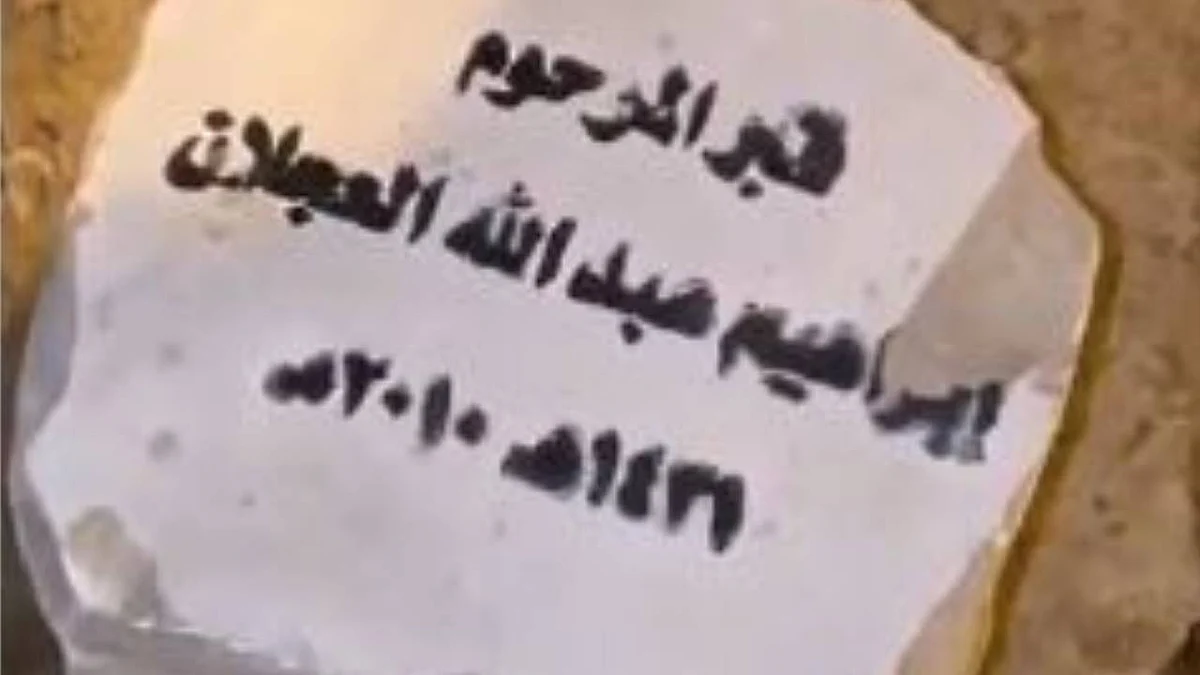 قبر المرحوم
إبراهيم عبد الله العجلان
١٤٣١هـ ٢٠١٠م